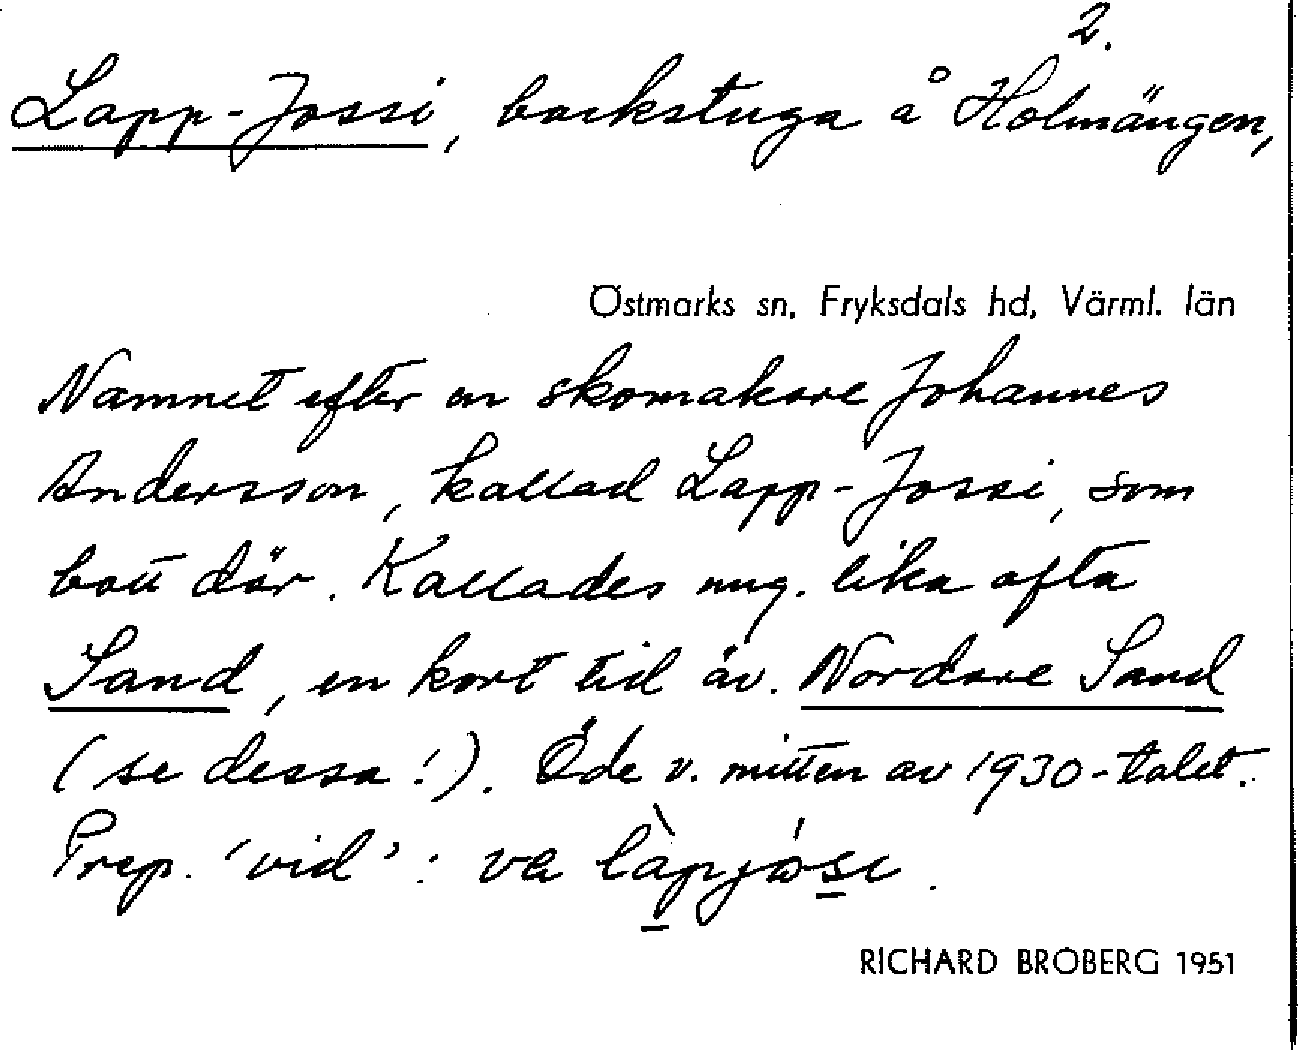 2.
Lapp-Jossi, backstuga å Holmängen,
Östmarks sn, Fryksdals hd, Värml. län
Namnet efter en skomakare Johannes
Andersson, kallad Lapp-Jossi, som
bott där. Kallades ung. lika ofta
Sand, en kort tid äv. Nordare Sand
(se dessa!). Öde v. mitten av 1930-talet.
Prep. 'vid': va
RICHARD BROBERG 1951